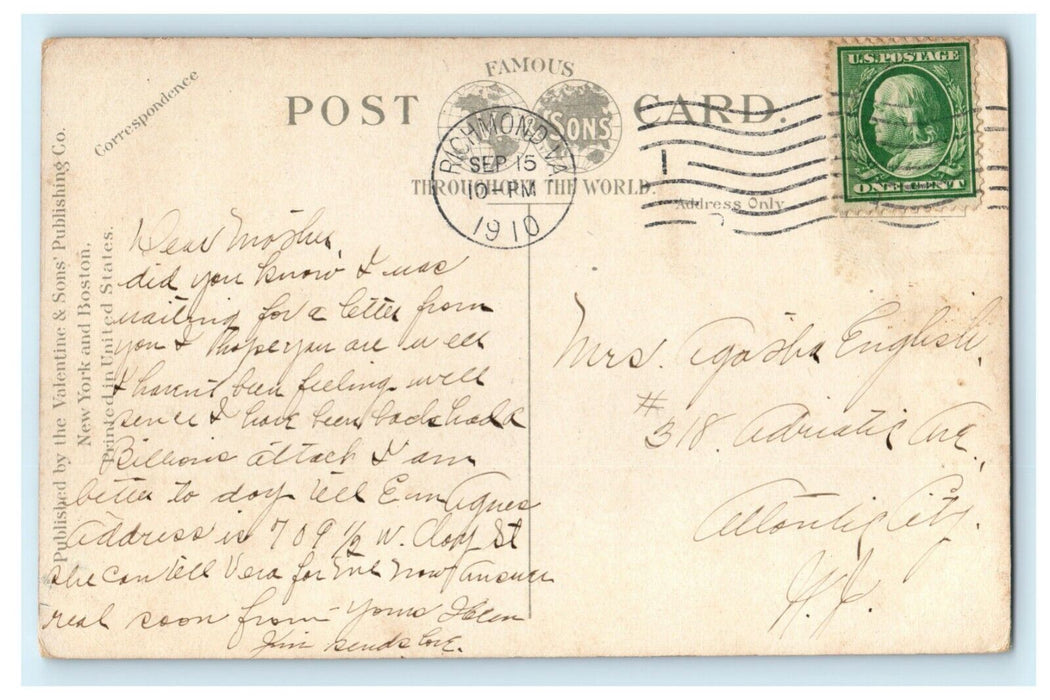 Correspondence
FAMOUS
POST CARD.
& SONS
THROUGHOUT THE WORLD.
Address Only
RICHMOND, VA
SEP 15
10-PM
1910
1
U.S. POSTAGE
ONE CENT
Published by the Valentine & Sons' Publishing Co.
New York and Boston.
Printed in United States.
Dear Mother,
did you know I was
waiting for a letter from
you I hope you are well
I havent been feeling well
sence I have been back had a
Billious attack I am
better to day tell Em Agnes
Address is 709 1/2 W. Clay St
she can tell Vera for me now answer
real soon from yours Helen
Jim sends love.
Mrs. Agatha English,
# 318 Adriatic Ave,
Atlantic City.
N.J.